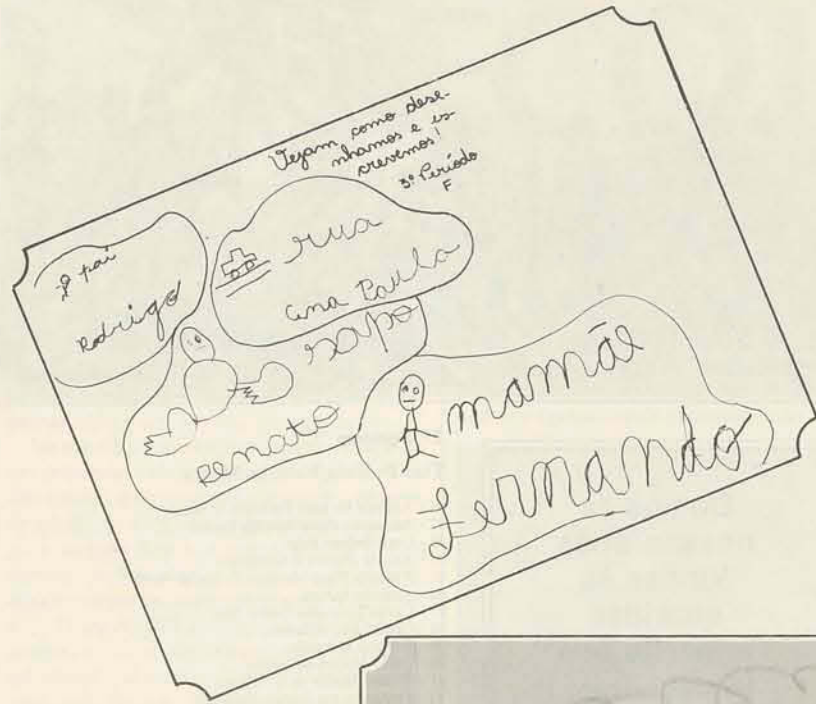 Vejam como dese-
nhamos e es-
crevemos!
3º Período
F
pai
Rodrigo
rua
Ana Paula
sapo
Renato
mamãe
Fernando